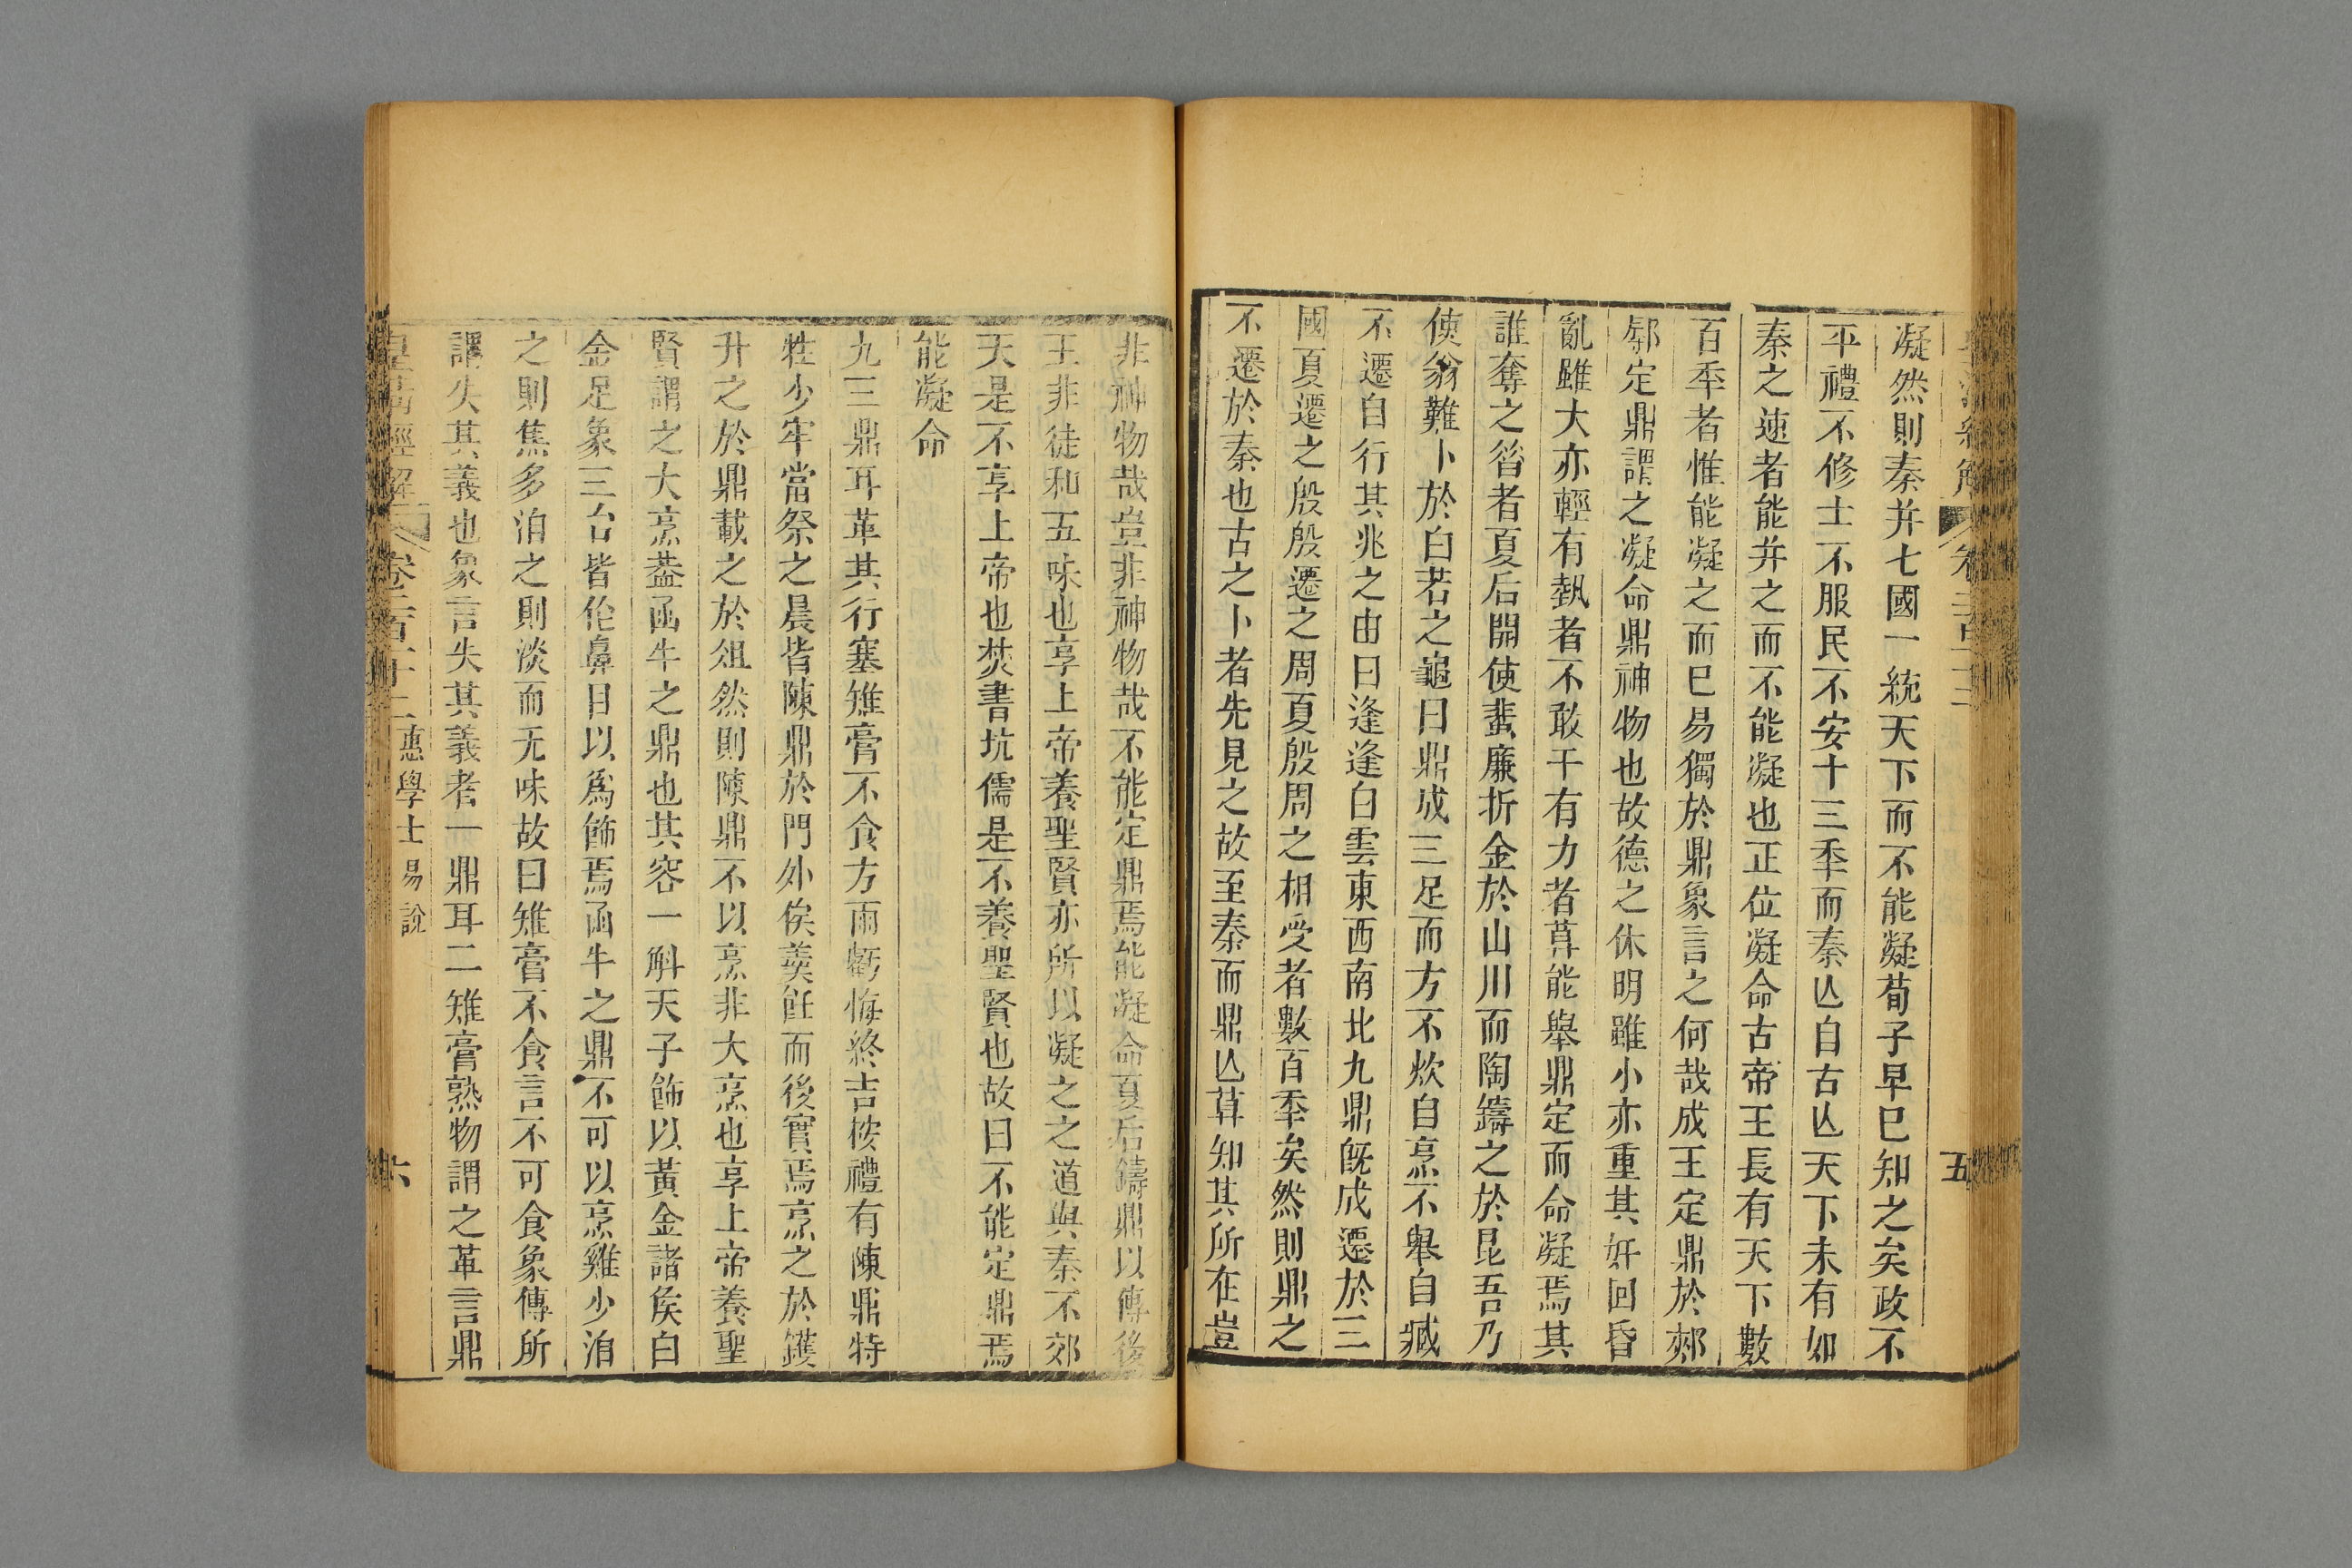 凝然則秦并七國一統天下而不能凝荀子早巳知之矣政不
平禮不修士不服民不安十三秊而秦亾自古亾天下未有如
秦之速者能并之而不能凝也正位凝命古帝王長有天下數
百秊者惟能凝之而巳易獨於鼎象言之何哉成王定鼎於郟
鄏定鼎謂之凝命鼎神物也故德之休明雖小亦重其奸回昏
亂雖大亦輕有埶者不敢干有力者莫能舉鼎定而命凝焉其
誰奪之昝者夏后開使蜚廉折金於山川而陶鑄之於昆吾乃
使翁難卜於白若之龜曰鼎成三足而方不炊自烹不舉自臧
不遷自行其兆之由曰逢逢白雲東西南北九鼎旣成遷於三
國夏遷之殷殷遷之周夏殷周之相受者數百秊矣然則鼎之
不遷於秦也古之卜者先見之故至秦而鼎亾莫知其所在豈
五
非神物哉豈非神物哉不能定鼎焉能凝命夏后鑄鼎以傳後
王非徒和五味也享上帝養聖賢亦所以凝之之道與秦不郊
天是不享上帝也焚書坑儒是不養聖賢也故曰不能定鼎焉
能凝命
九三鼎耳革其行塞雉膏不食方雨虧悔終吉按禮有陳鼎特
牲少牢當祭之晨皆陳鼎於門外俟羹飪而後實焉烹之於鑊
升之於鼎載之於俎然則陳鼎不以烹非大烹也享上帝養聖
賢謂之大烹葢函牛之鼎也其容一斛天子飾以黃金諸侯白
金足象三台皆作鼻目以爲飾焉函牛之鼎不可以烹雞少洎
之則焦多洎之則淡而无味故曰雉膏不食言不可食象傳所
謂失其義也象言失其義者一鼎耳二雉膏熟物謂之革言鼎
皇淸經解 卷二百十二 惠學士易說 六